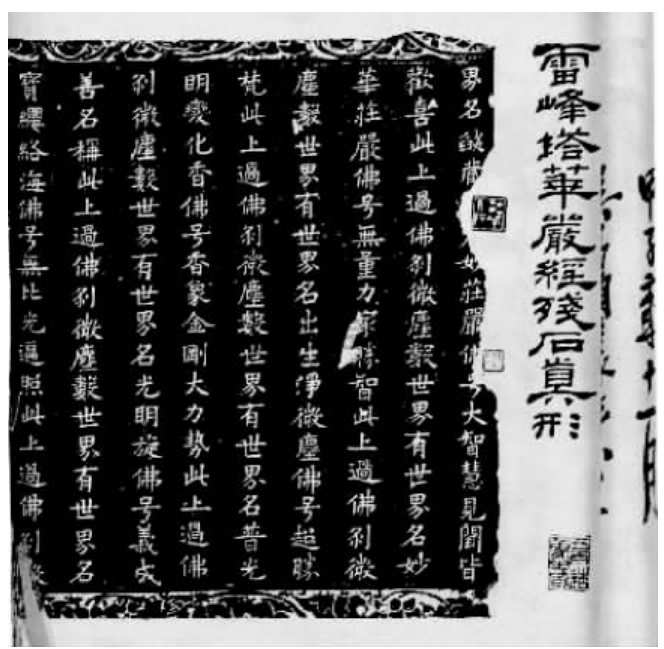 雷峰塔華嚴經殘石真形
界名妙莊嚴佛号大智慧見聞皆
歡喜此上過佛刹微塵數世界有世界名妙
華莊嚴佛号無量力最勝智此上過佛刹微
塵數世界有世界名出生淨微塵佛号超勝
梵此上過佛刹微塵數世界有世界名普光
明變化香佛号香象金剛大力勢此上過佛
刹微塵數世界有世界名光明旋佛号義成
善名稱此上過佛刹微塵數世界有世界名
寶纓絡海佛号無比光遍照此上過佛刹微